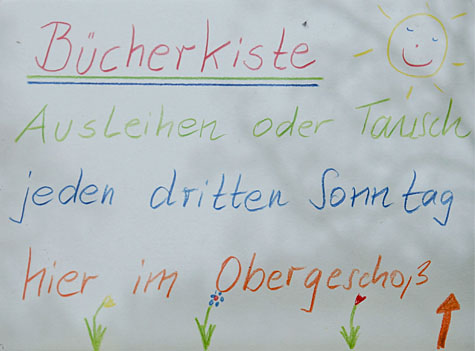 Bücherkiste
Ausleihen oder Tausch
jeden dritten Sonntag
hier im Obergeschoß